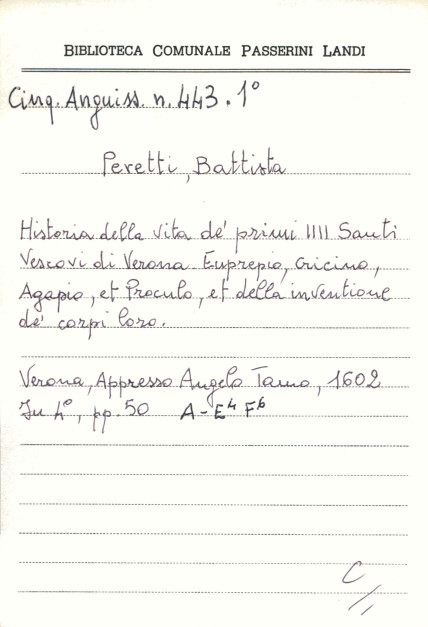 BIBLIOTECA COMUNALE PASSERINI LANDI
Cinq. Anguiss. n. 443. 1°
Peretti, Battista
Historia della vita de' primi IIII Santi
Vescovi di Verona. Euprepio, Cricino,
Agapio, et Proculo, et della inventione
de' corpi loro.
Verona, Appresso Angelo Tamo, 1602
In 4°, pp. 50 A-E⁴ F⁶
C